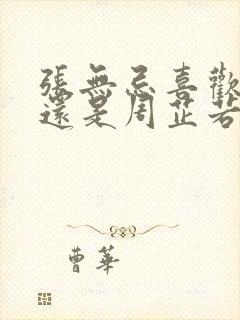 張無忌喜歡
還是周芷若
曹華